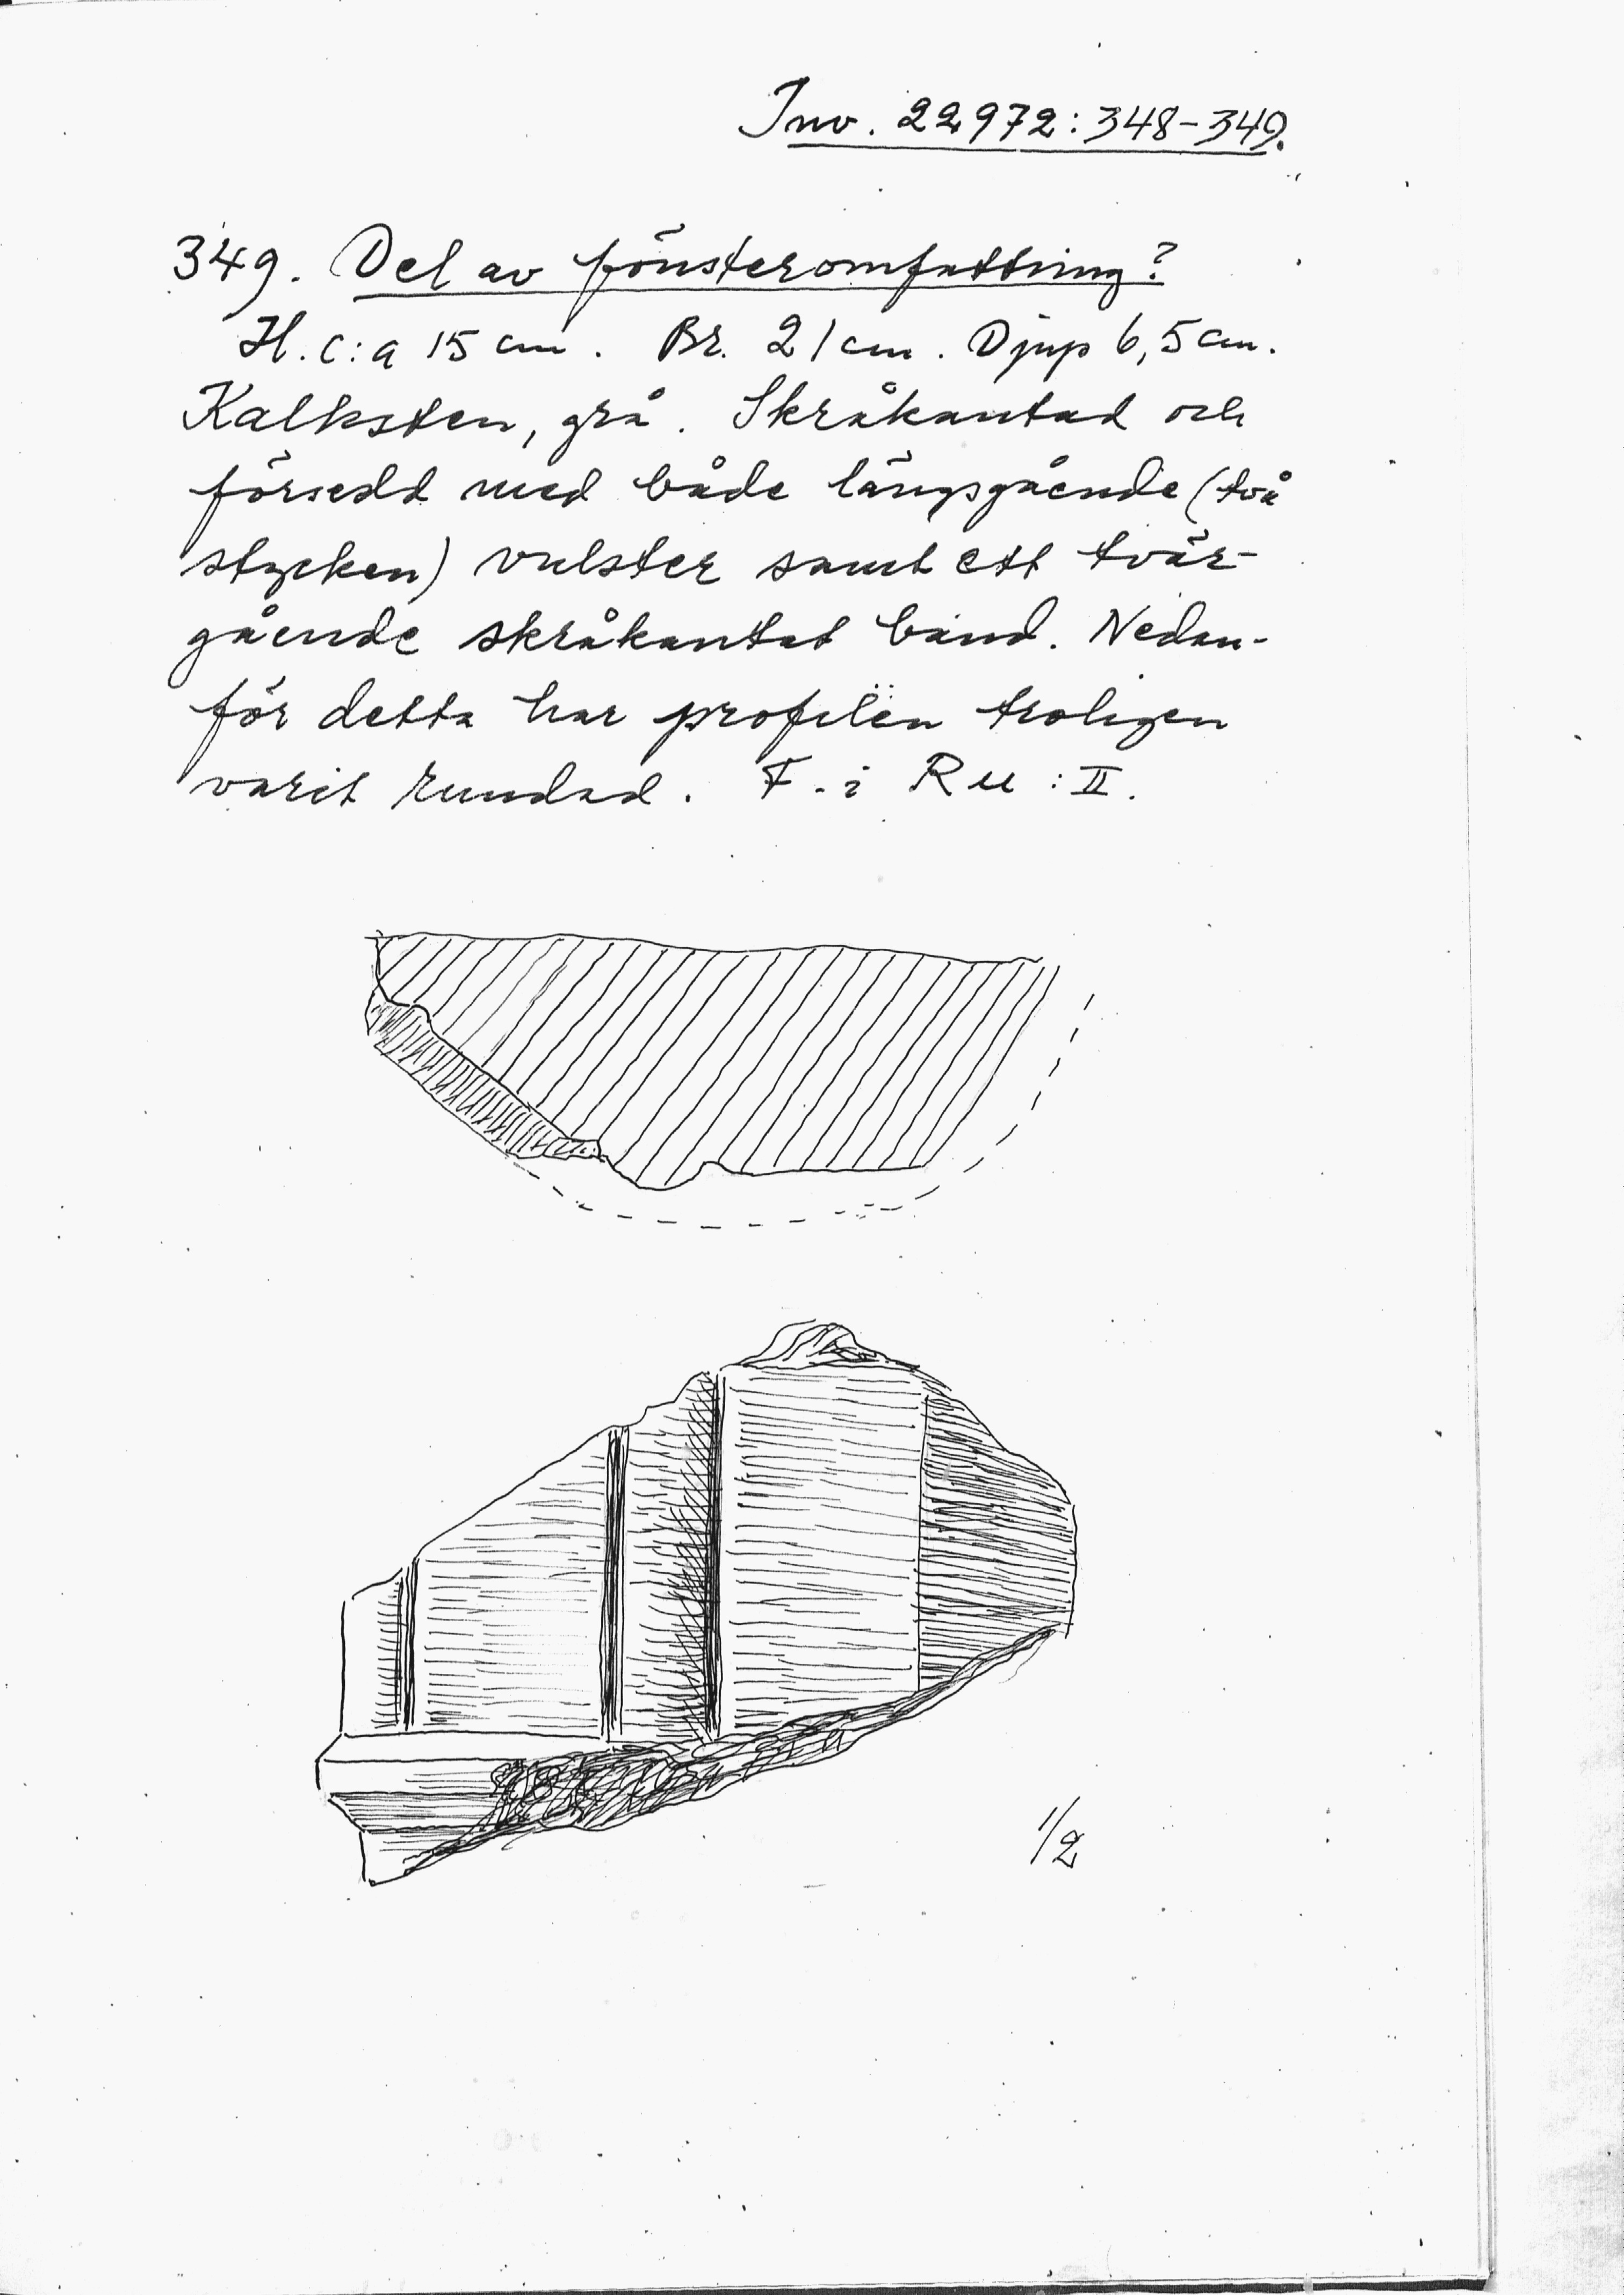 Inv. 22972:348-349.
349. Del av fönsteromfattning?
H. c:a 15 cm. Br. 21 cm. Djup 6,5 cm.
Kalksten, grå. Skråkantad och
försedd med både längsgående (två
stycken) vulster samt ett tvär-
gående skråkantat band. Nedan-
för detta har profilen troligen
varit rundad. F. i Ru : II.
1/2